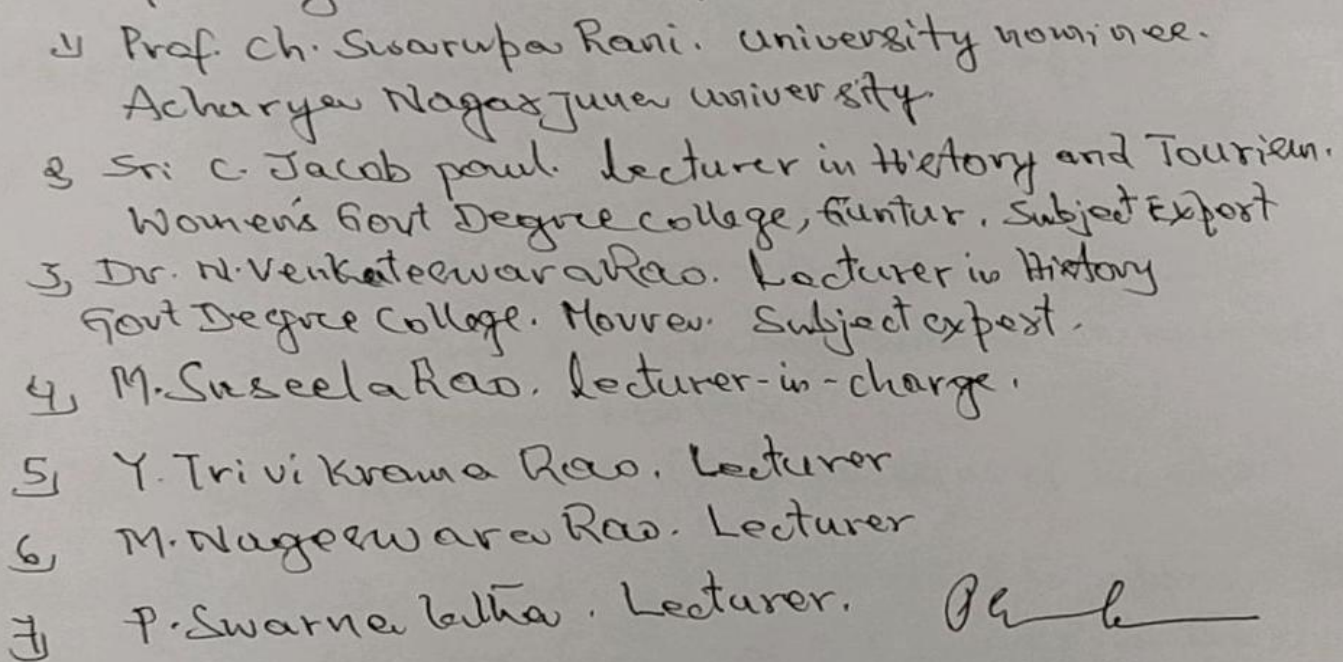 1) Prof. Ch. Swarupa Rani. University nominee.
Acharya Nagarjuna University.
2) Sri C. Jacob paul. Lecturer in History and Tourism.
Women's Govt Degree College, Guntur. Subject Expert
3) Dr. N. Venkateswara Rao. Lecturer in History
Govt Degree College. Movva. Subject expert.
4) M. Suseela Rao. Lecturer-in-charge.
5) Y. Trivi Krama Rao. Lecturer
6) M. Nageswara Rao. Lecturer
7) P. Swarna latha. Lecturer.